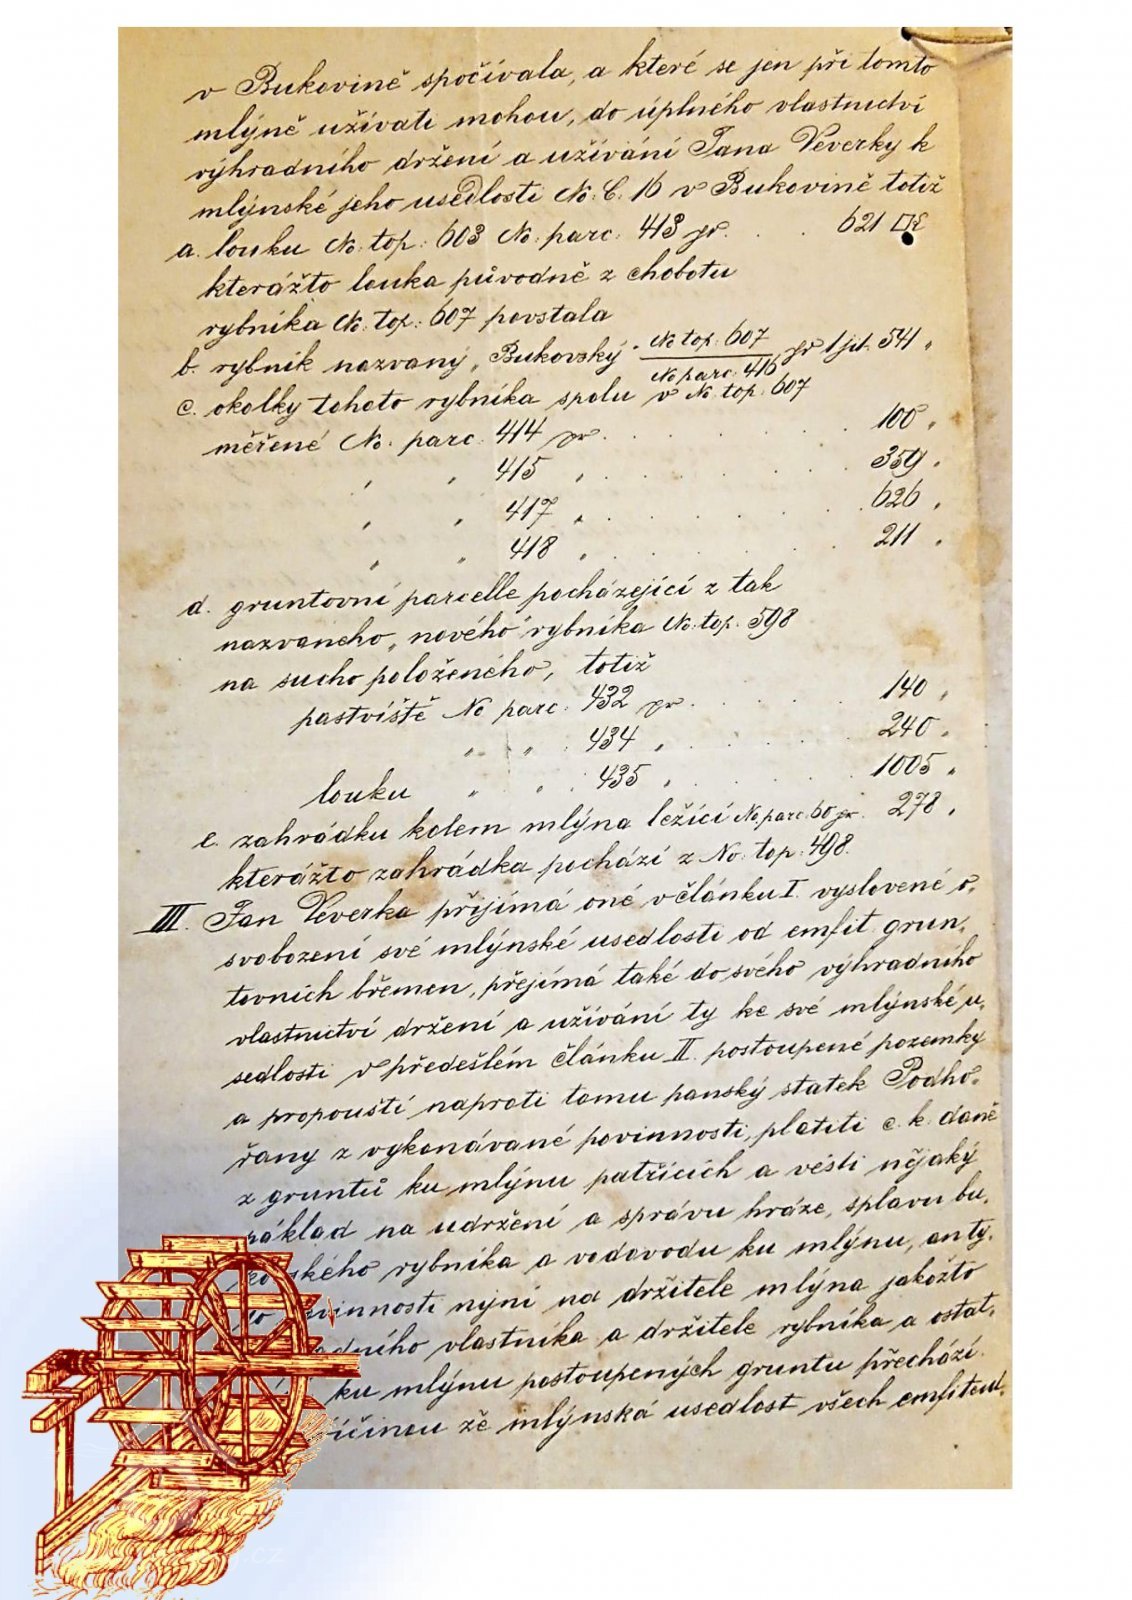 v Bukovině spočívala, a které se jen při tomto
mlýně užívati mohou, do úplného vlastnictví
výhradního držení a užívání Jana Veverky k
mlýnské jeho usedlosti No. C. 16 v Bukovině totiž
a. louku No. top. 603 No. parc. 413 pr. . . 621 □°
kterážto louka původně z chobotu
rybníka No. top. 607 povstala
b. rybník nazvaný „Bukovský" No top. 607 / No parc. 416 pr 1 jit. 541 „
c. okolky tohoto rybníka spolu v No. top. 607
měřené No. parc. 414 pr. . . . . 100 „
„ „ 415 „ . . . . 359 „
„ „ 417 „ . . . . 626 „
„ „ 418 „ . . . . 211 „
d. gruntovní parcelle pocházející z tak
nazvaného „nového" rybníka No. top. 598
na sucho položeného, totiž
pastviště No parc. 432 pr. . . . 140 „
„ „ 434 „ . . . 240 „
louku „ „ 435 „ . . . 1005 „
e. zahrádku kolem mlýna ležící No. parc. 60 pr. 278 „
kterážto zahrádka pochází z No. top. 498.
III. Jan Veverka přijímá oné v článku I. vyslovené o-
svobození své mlýnské usedlosti od emfit. grun-
tovních břemen, přejímá také do svého výhradního
vlastnictví držení a užívání ty ke své mlýnské u-
sedlosti v předešlém článku II. postoupené pozemky
a propouští naproti tomu panský statek Podho-
řany z vykonávané povinnosti, platiti c. k. daně
z gruntů ku mlýnu patřících a vésti nějaký
náklad na udržení a správu hráze, splavu bu-
kovského rybníka a vodovodu ku mlýnu, an ty-
to povinnosti nyní na držitele mlýna jakožto
vlastníka a držitele rybníka a ostat-
ku mlýnu postoupených gruntu přechází.
příčinou že mlýnská usedlost všech emfiteut.